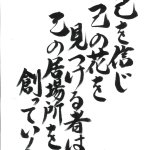 己を信じ
己の花を
見つける者は
己の居場所を
創っていく